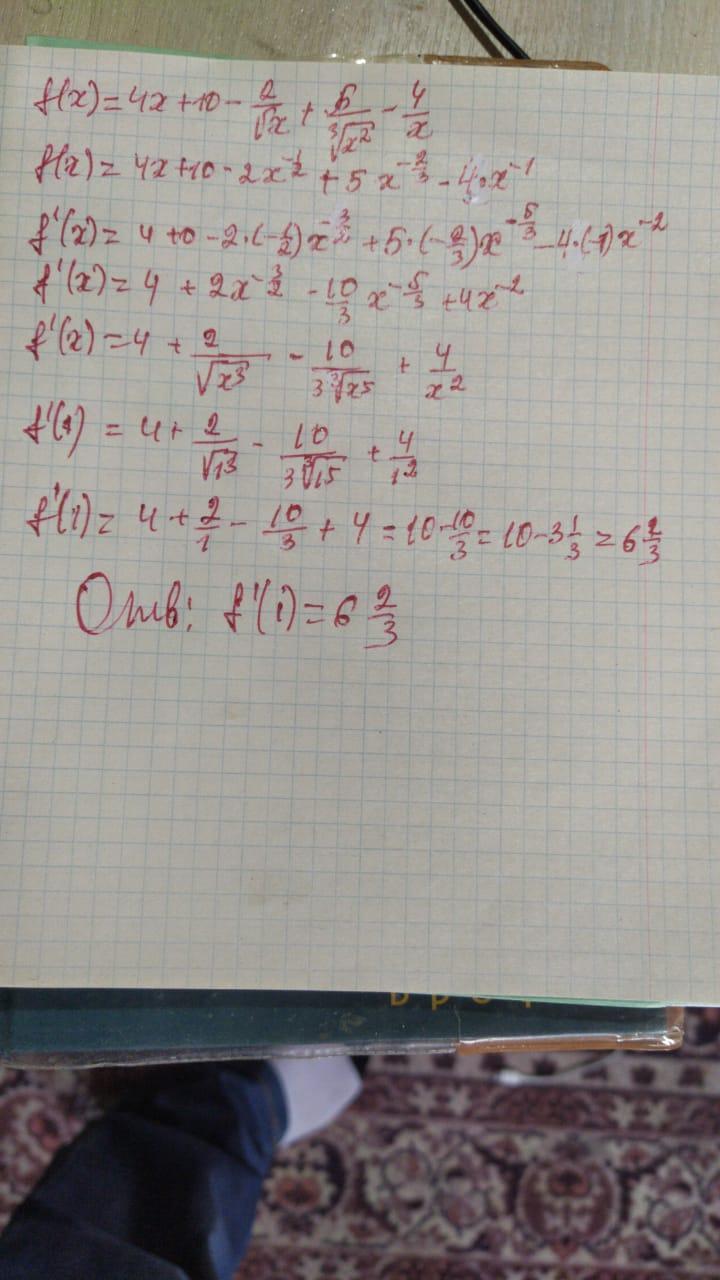 f(x)=4x+10-2/√x+5/∛x²-4/x
f(x)=4x+10-2x^-1/2+5x^-2/3-4·x^-1
f'(x)=4+0-2·(-1/2)x^-3/2+5·(-2/3)x^-5/3-4·(-1)x^-2
f'(x)=4+2x^-3/2-10/3x^-5/3+4x^-2
f'(x)=4+2/√x³-10/3∛x⁵+4/x²
f'(1)=4+2/√1³-10/3∛1⁵+4/1²
f'(1)=4+2/1-10/3+4=10-10/3=10-3 1/3=6 2/3
Отв: f'(1)=6 2/3